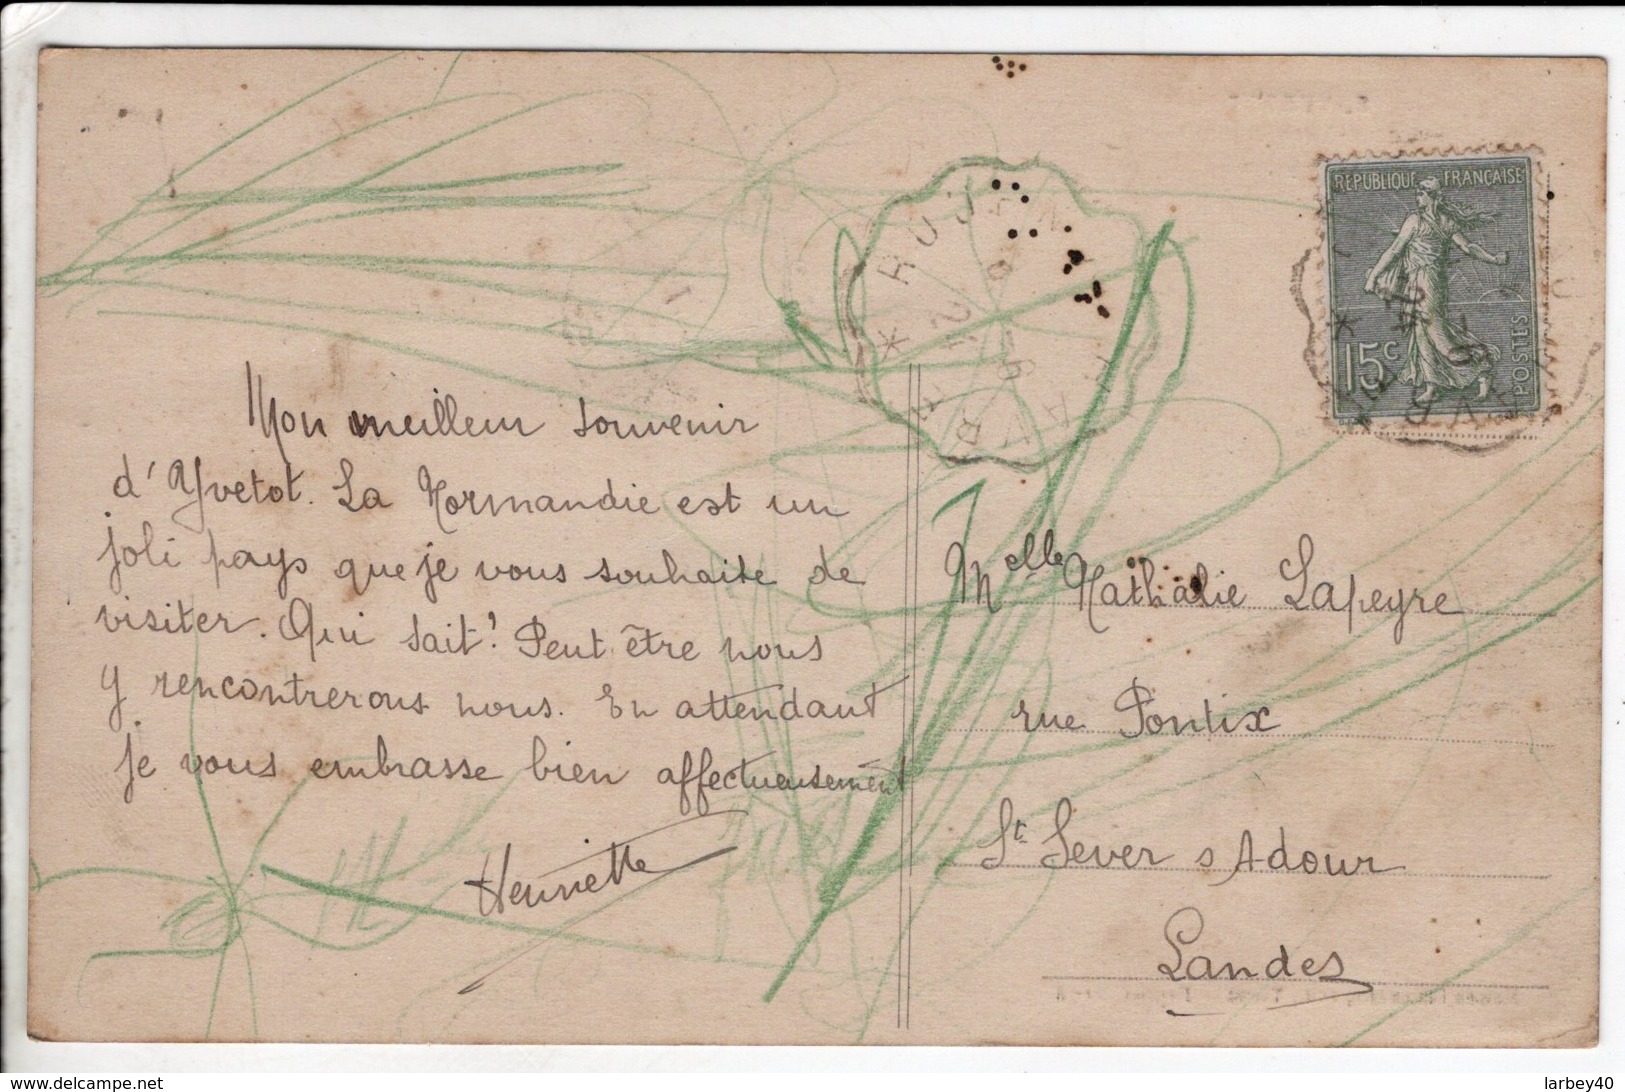 Mon meilleur souvenir
d'Yvetot. La Normandie est un
joli pays que je vous souhaite de
visiter. Qui sait! Peut être nous
y rencontrerons nous. En attendant
je vous embrasse bien affectueusement
Henriette
REPUBLIQUE FRANÇAISE
15c
POSTES
Melle Nathalie Lapeyre
rue Pontix
St Sever s Adour
Landes
www.delcampe.net
larbey40